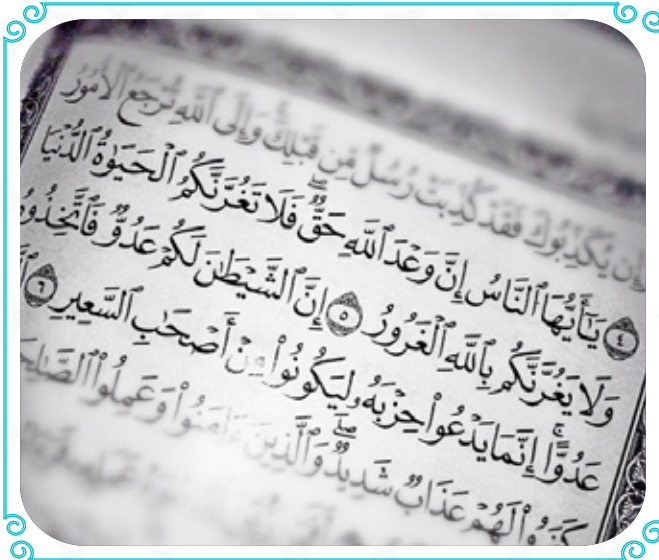 وَإِن يُكَذِّبُوكَ فَقَدْ كُذِّبَتْ رُسُلٌ مِّن قَبْلِكَ وَإِلَى ٱللَّهِ تُرْجَعُ ٱلْأُمُورُ
٤ يَٰٓأَيُّهَا ٱلنَّاسُ إِنَّ وَعْدَ ٱللَّهِ حَقٌّۖ فَلَا تَغُرَّنَّكُمُ ٱلْحَيَوٰةُ ٱلدُّنْيَا
وَلَا يَغُرَّنَّكُم بِٱللَّهِ ٱلْغَرُورُ ٥ إِنَّ ٱلشَّيْطَٰنَ لَكُمْ عَدُوٌّ فَٱتَّخِذُوهُ
عَدُوًّاۚ إِنَّمَا يَدْعُوا۟ حِزْبَهُۥ لِيَكُونُوا۟ مِنْ أَصْحَٰبِ ٱلسَّعِيرِ ٦
كَفَرُوا۟ لَهُمْ عَذَابٌ شَدِيدٌۖ وَٱلَّذِينَ ءَامَنُوا۟ وَعَمِلُوا۟ ٱلصَّٰلِحَ